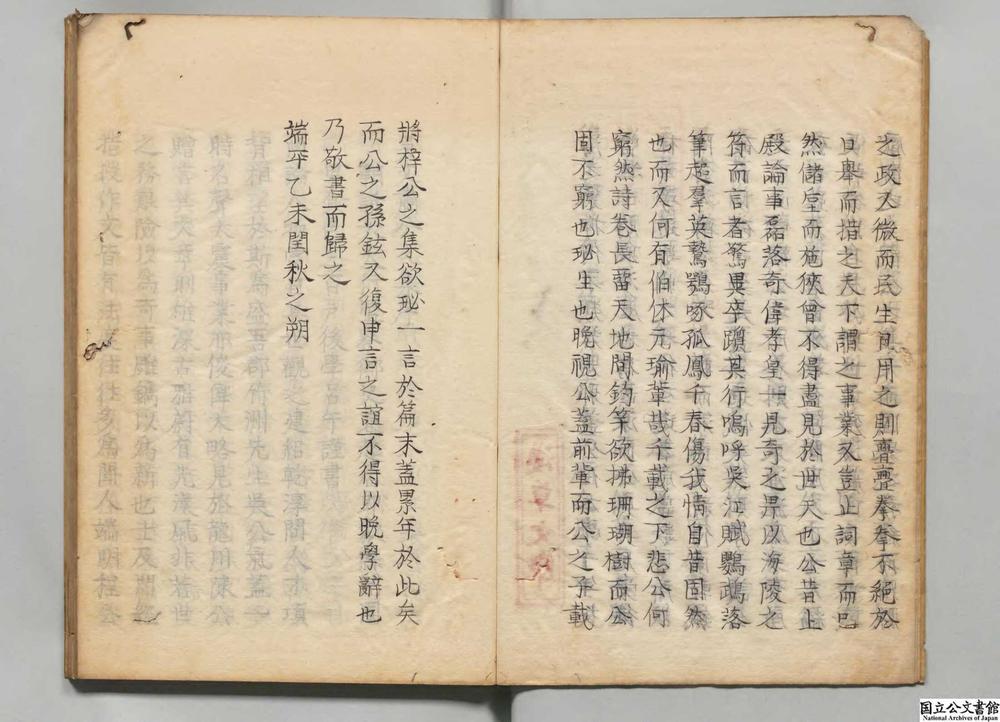 之政又微而民生日用之則亹亹拳拳不絕於
口舉而措之天下謂之事業又豈止詞章而已
然儲皇而施俠曾不得盡見於世天也公昔上
殿論事磊落奇偉孝皇一見奇之畀以海陵之
符而言者驚異卒躓其行嗚呼吳江賦鸚鵡落
筆超羣英鷙鶚啄孤鳳千春傷我情自昔固然
也而又何有伯休元瑜輩哉千載之下悲公何
窮然詩卷長留天地間釣竿欲拂珊瑚樹而公
固不窮也珌生也晚視公蓋前輩而公之子載
將梓公之集欲珌一言於篇末蓋累年於此矣
而公之孫鉉又復申言之誼不得以晚學辭也
乃敬書而歸之
端平乙未閏秋之朔
国立公文書館
National Archives of Japan